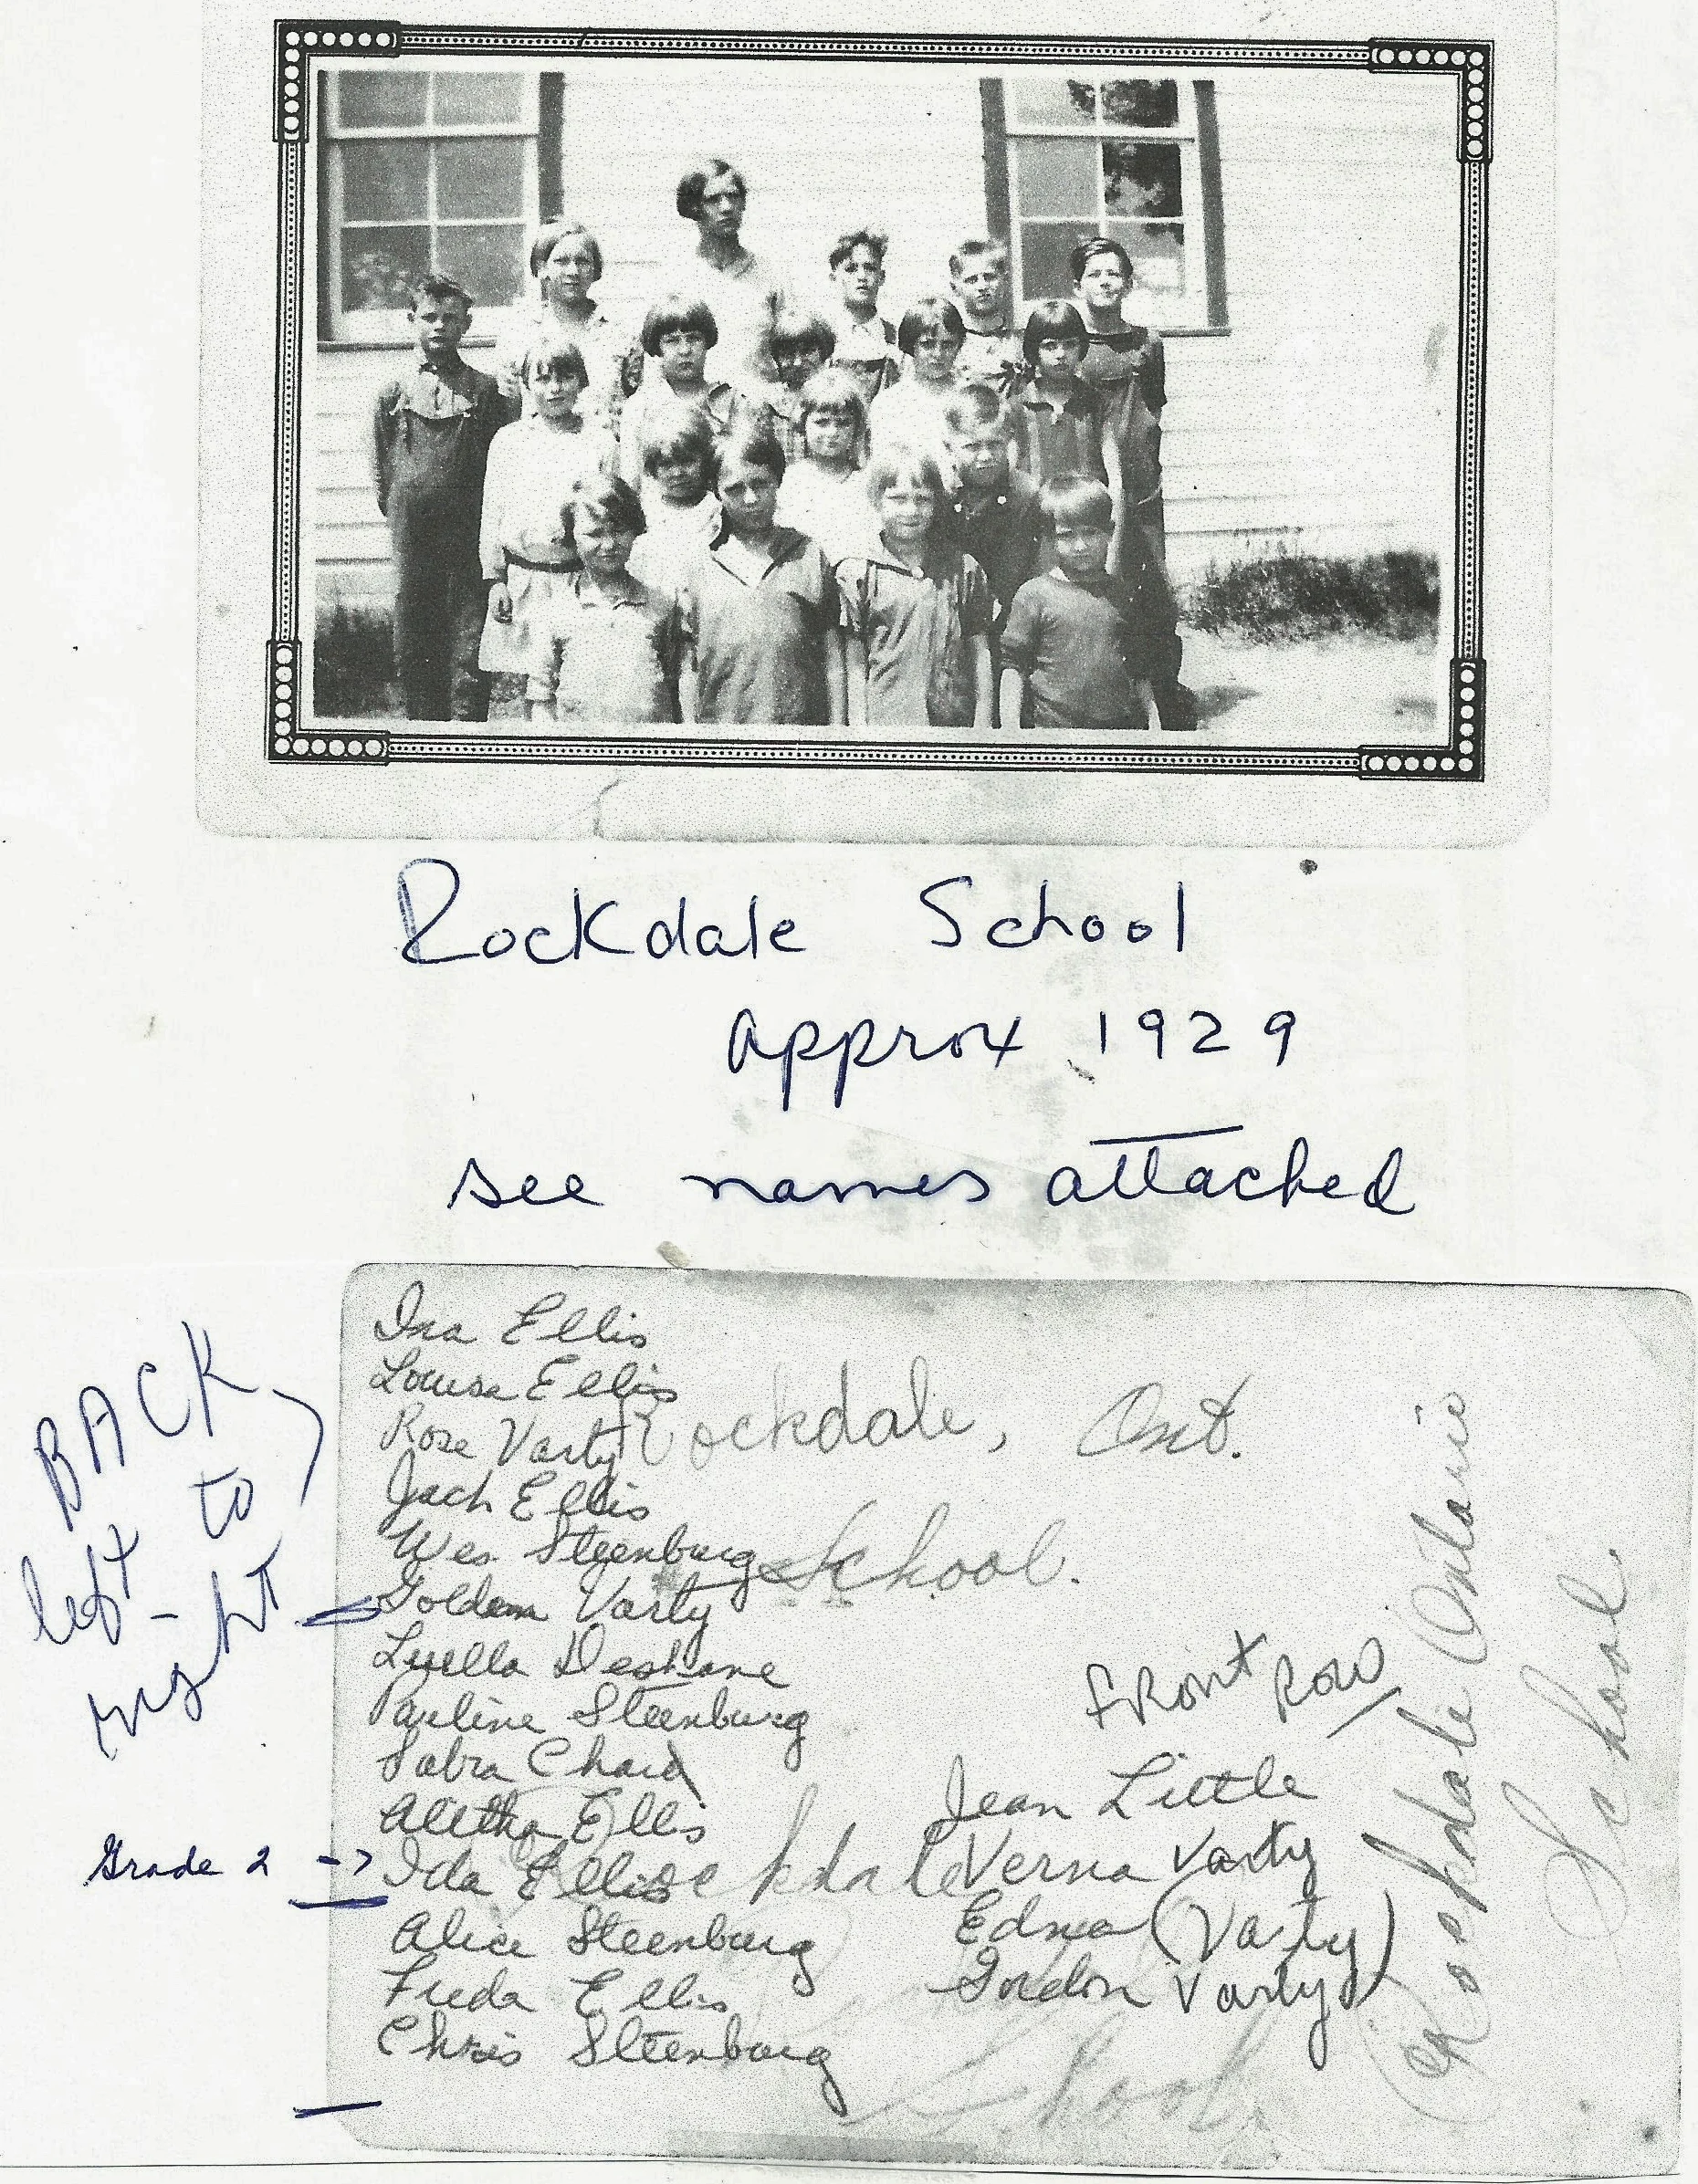 Rockdale School
approx 1929
see names attached
BACK
left to
right
Ina Ellis
Louisa Ellis
Rose Varty
Jack Ellis
Wes Steenburg
Golden Varty
Luella Deshane
Pauline Steenburg
Sabra Chard
Aletha Ellis
Grade 2 -> Ida Ellis
Alice Steenburg
Freda Ellis
Chris Steenburg
Rockdale, Ont.
School.
Front Row
Jean Little
Verna Varty
Edna (Varty)
Gordon Varty
Rockdale
School
Rockdale Ontario
School